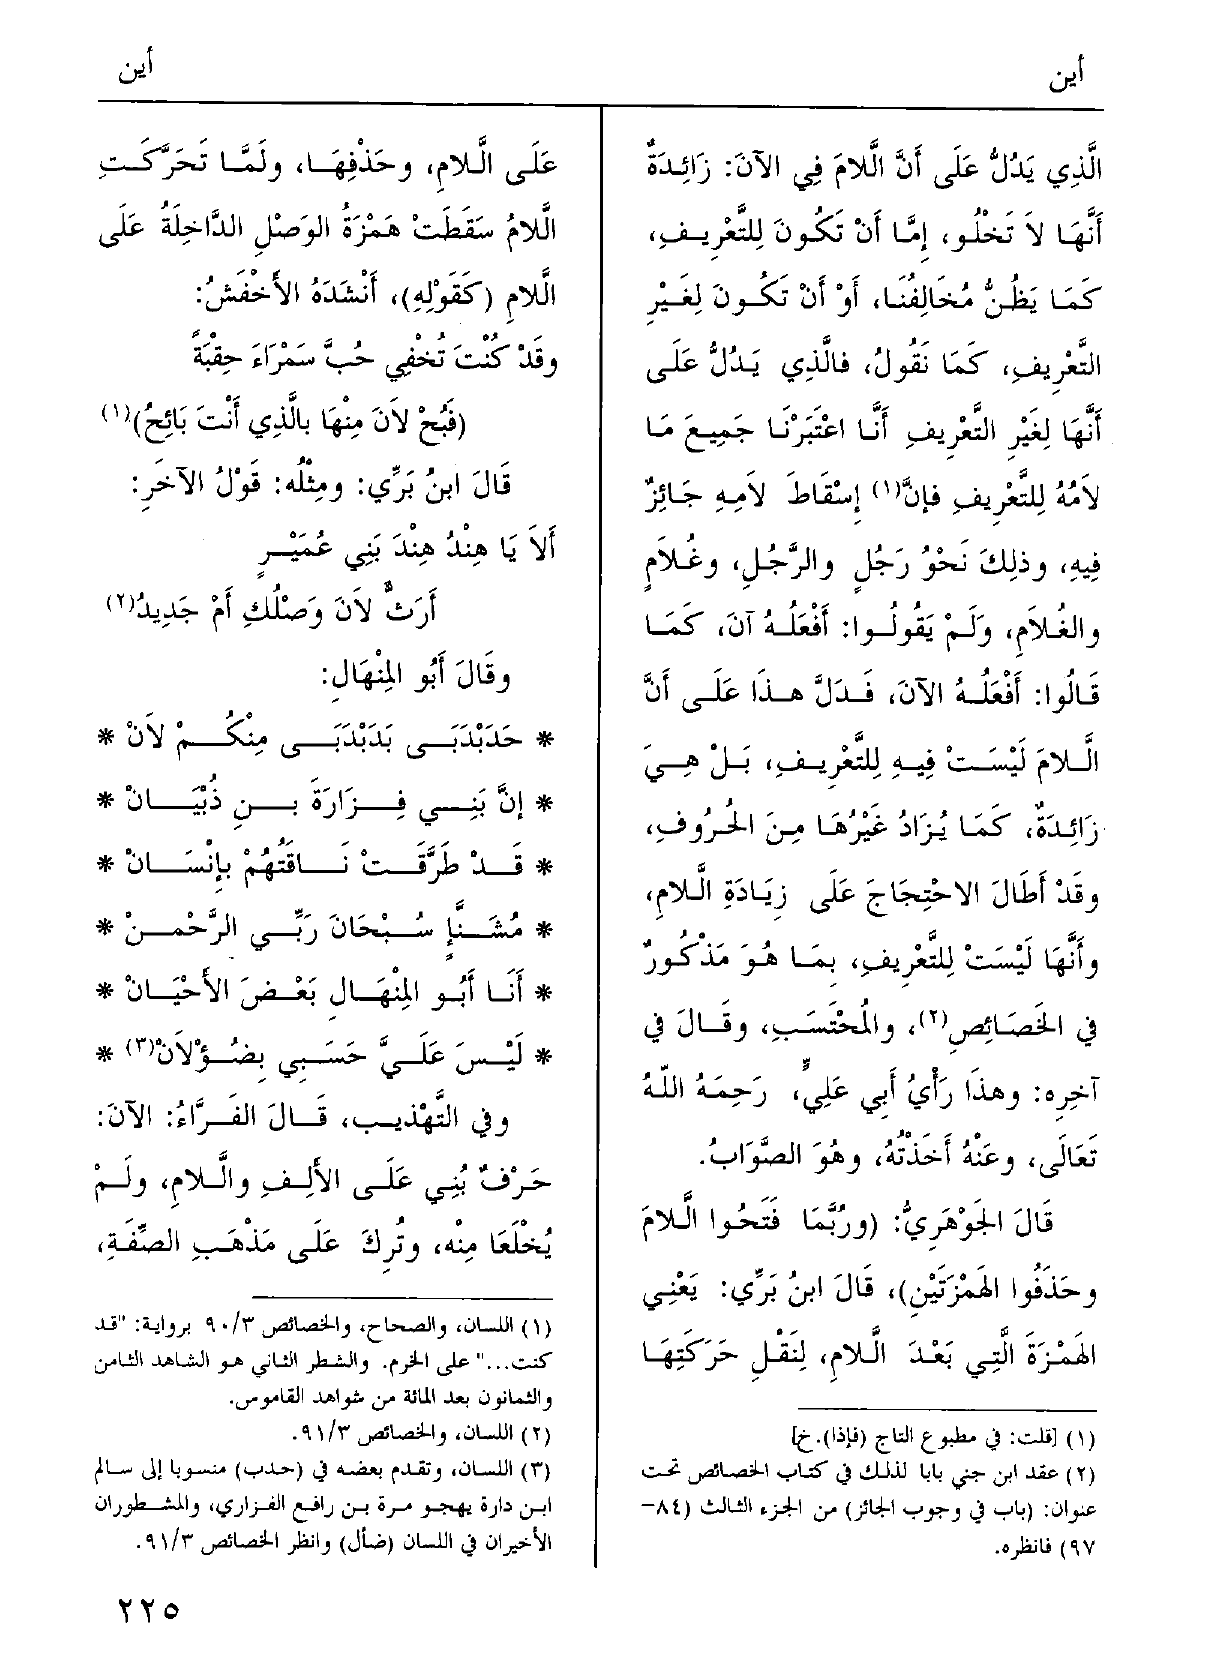 أين
أين
الَّذِي يَدُلُّ عَلَى أَنَّ الَّلامَ فِي الآنَ: زَائِدَةٌ
أَنَّهَا لاَ تَخْلُو، إِمَّا أَنْ تَكُونَ لِلتَّعْرِيفِ،
كَمَا يَظُنُّ مُخَالِفُنَا، أَوْ أَنْ تَكُونَ لِغَيْرِ
التَّعْرِيفِ، كَمَا نَقُولُ، فالَّذِي يَدُلُّ عَلَى
أَنَّهَا لِغَيْرِ التَّعْرِيفِ أَنَّا اعْتَبَرْنَا جَمِيعَ مَا
لاَمُهُ لِلتَّعْرِيفِ فإنَّ(١) إِسْقاطَ لاَمِهِ جَائِزٌ
فِيهِ، وذلِكَ نَحْوُ رَجُلٍ والرَّجُلِ، وغُلاَمٍ
والغُلاَمِ، وَلَمْ يَقُولُوا: أَفْعَلُهُ آنَ، كَمَا
قَالُوا: أَفْعَلُهُ الآنَ، فَدَلَّ هذَا عَلَى أَنَّ
الَّلامَ لَيْسَتْ فِيهِ لِلتَّعْرِيفِ، بَلْ هِيَ
زَائِدَةٌ، كَمَا يُزَادُ غَيْرُهَا مِنَ الحُرُوفِ،
وقَدْ أَطَالَ الاحْتِجَاجَ عَلَى زِيَادَةِ الَّلامِ،
وأَنَّهَا لَيْسَتْ لِلتَّعْرِيفِ، بِمَا هُوَ مَذْكُورٌ
فِي الخَصَائِصِ(٢)، والمُحْتَسَبِ، وقَالَ فِي
آخِرِه: وهذَا رَأْيُ أَبِي عَلِيٍّ، رَحِمَهُ اللّهُ
تَعَالَى، وعَنْهُ أَخَذْتُهُ، وهُوَ الصَّوَابُ.
قَالَ الجَوْهَرِيُّ: (ورُبَّمَا فَتَحُوا الَّلامَ
وحَذَفُوا الهَمْزَتَيْنِ)، قَالَ ابنُ بَرِّي: يَعْنِي
الهَمْزَةَ الَّتِي بَعْدَ الَّلامِ، لِنَقْلِ حَرَكَتِهَا
(١) [قلت: في مطبوع التاج (فإذا). خ]
(٢) عقد ابن جني بابا لذلك في كتاب الخصائص تحت
عنوان: (باب في وجوب الجائز) من الجزء الثالث (٨٤-
٩٧) فانظره.
عَلَى الَّلامِ، وحَذْفِهَا، ولَمَّا تَحَرَّكَتِ
الَّلامُ سَقَطَتْ هَمْزَةُ الوَصْلِ الدَّاخِلَةُ عَلَى
الَّلامِ (كَقَوْلِهِ)، أَنْشَدَهُ الأَخْفَشُ:
وقَدْ كُنْتَ تُخْفِي حُبَّ سَمْرَاءَ حِقْبَةً
(فَبُحْ لاَنَ مِنْهَا بالَّذِي أَنْتَ بَائِحُ)(١)
قَالَ ابنُ بَرِّي: ومِثْلُه: قَوْلُ الآخَرِ:
أَلاَ يَا هِنْدُ هِنْدَ بَنِي عُمَيْرٍ
أَرَثٌّ لاَنَ وَصْلُكِ أَمْ جَدِيدُ(٢)
وقَالَ أَبُو المِنْهَالِ:
* حَدَبْدَبَى بَدَبْدَبَى مِنكُمْ لاَنْ *
* إنَّ بَنِي فَزَارَةَ بنِ ذُبْيَانْ *
* قَدْ طَرَّقَتْ نَاقَتُهُمْ بِإِنْسَانْ *
* مُشَنَّإٍ سُبْحَانَ رَبِّي الرَّحْمنْ *
* أَنَا أَبُو المِنْهَالِ بَعْضَ الأَحْيَانْ *
* لَيْسَ عَلَيَّ حَسَبِي بِضُؤْلاَنْ(٣) *
وفِي التَّهْذِيبِ، قَالَ الفَرَّاءُ: الآنَ:
حَرْفٌ بُنِي عَلَى الأَلِفِ والَّلامِ، ولَمْ
يُخْلَعَا مِنْه، وتُرِكَ عَلَى مَذْهَبِ الصِّفَةِ،
(١) اللسان، والصحاح، والخصائص ٩٠/٣ برواية: "قد
كنت..." على الخرم. والشطر الثاني هو الشاهد الثامن
والثمانون بعد المائة من شواهد القاموس.
(٢) اللسان، والخصائص ٩١/٣.
(٣) اللسان، وتقدم بعضه في (حدب) منسوبا إلى سالم
ابن دارة يهجو مرة بن رافع الفزاري، والمشطوران
الأخيران في اللسان (ضأل) وانظر الخصائص ٩١/٣.
٢٢٥